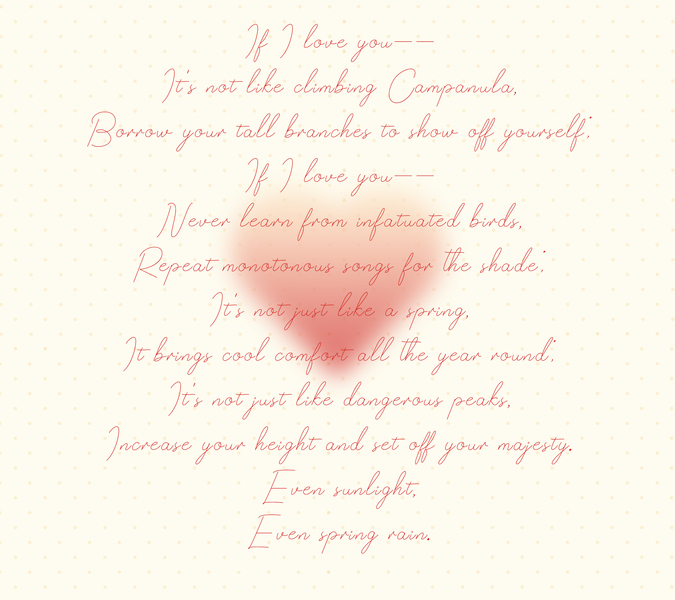 If I love you——
It's not like climbing Campanula,
Borrow your tall branches to show off yourself;
If I love you——
Never learn from infatuated birds,
Repeat monotonous songs for the shade;
It's not just like a spring,
It brings cool comfort all the year round;
It's not just like dangerous peaks,
Increase your height and set off your majesty.
Even sunlight,
Even spring rain.